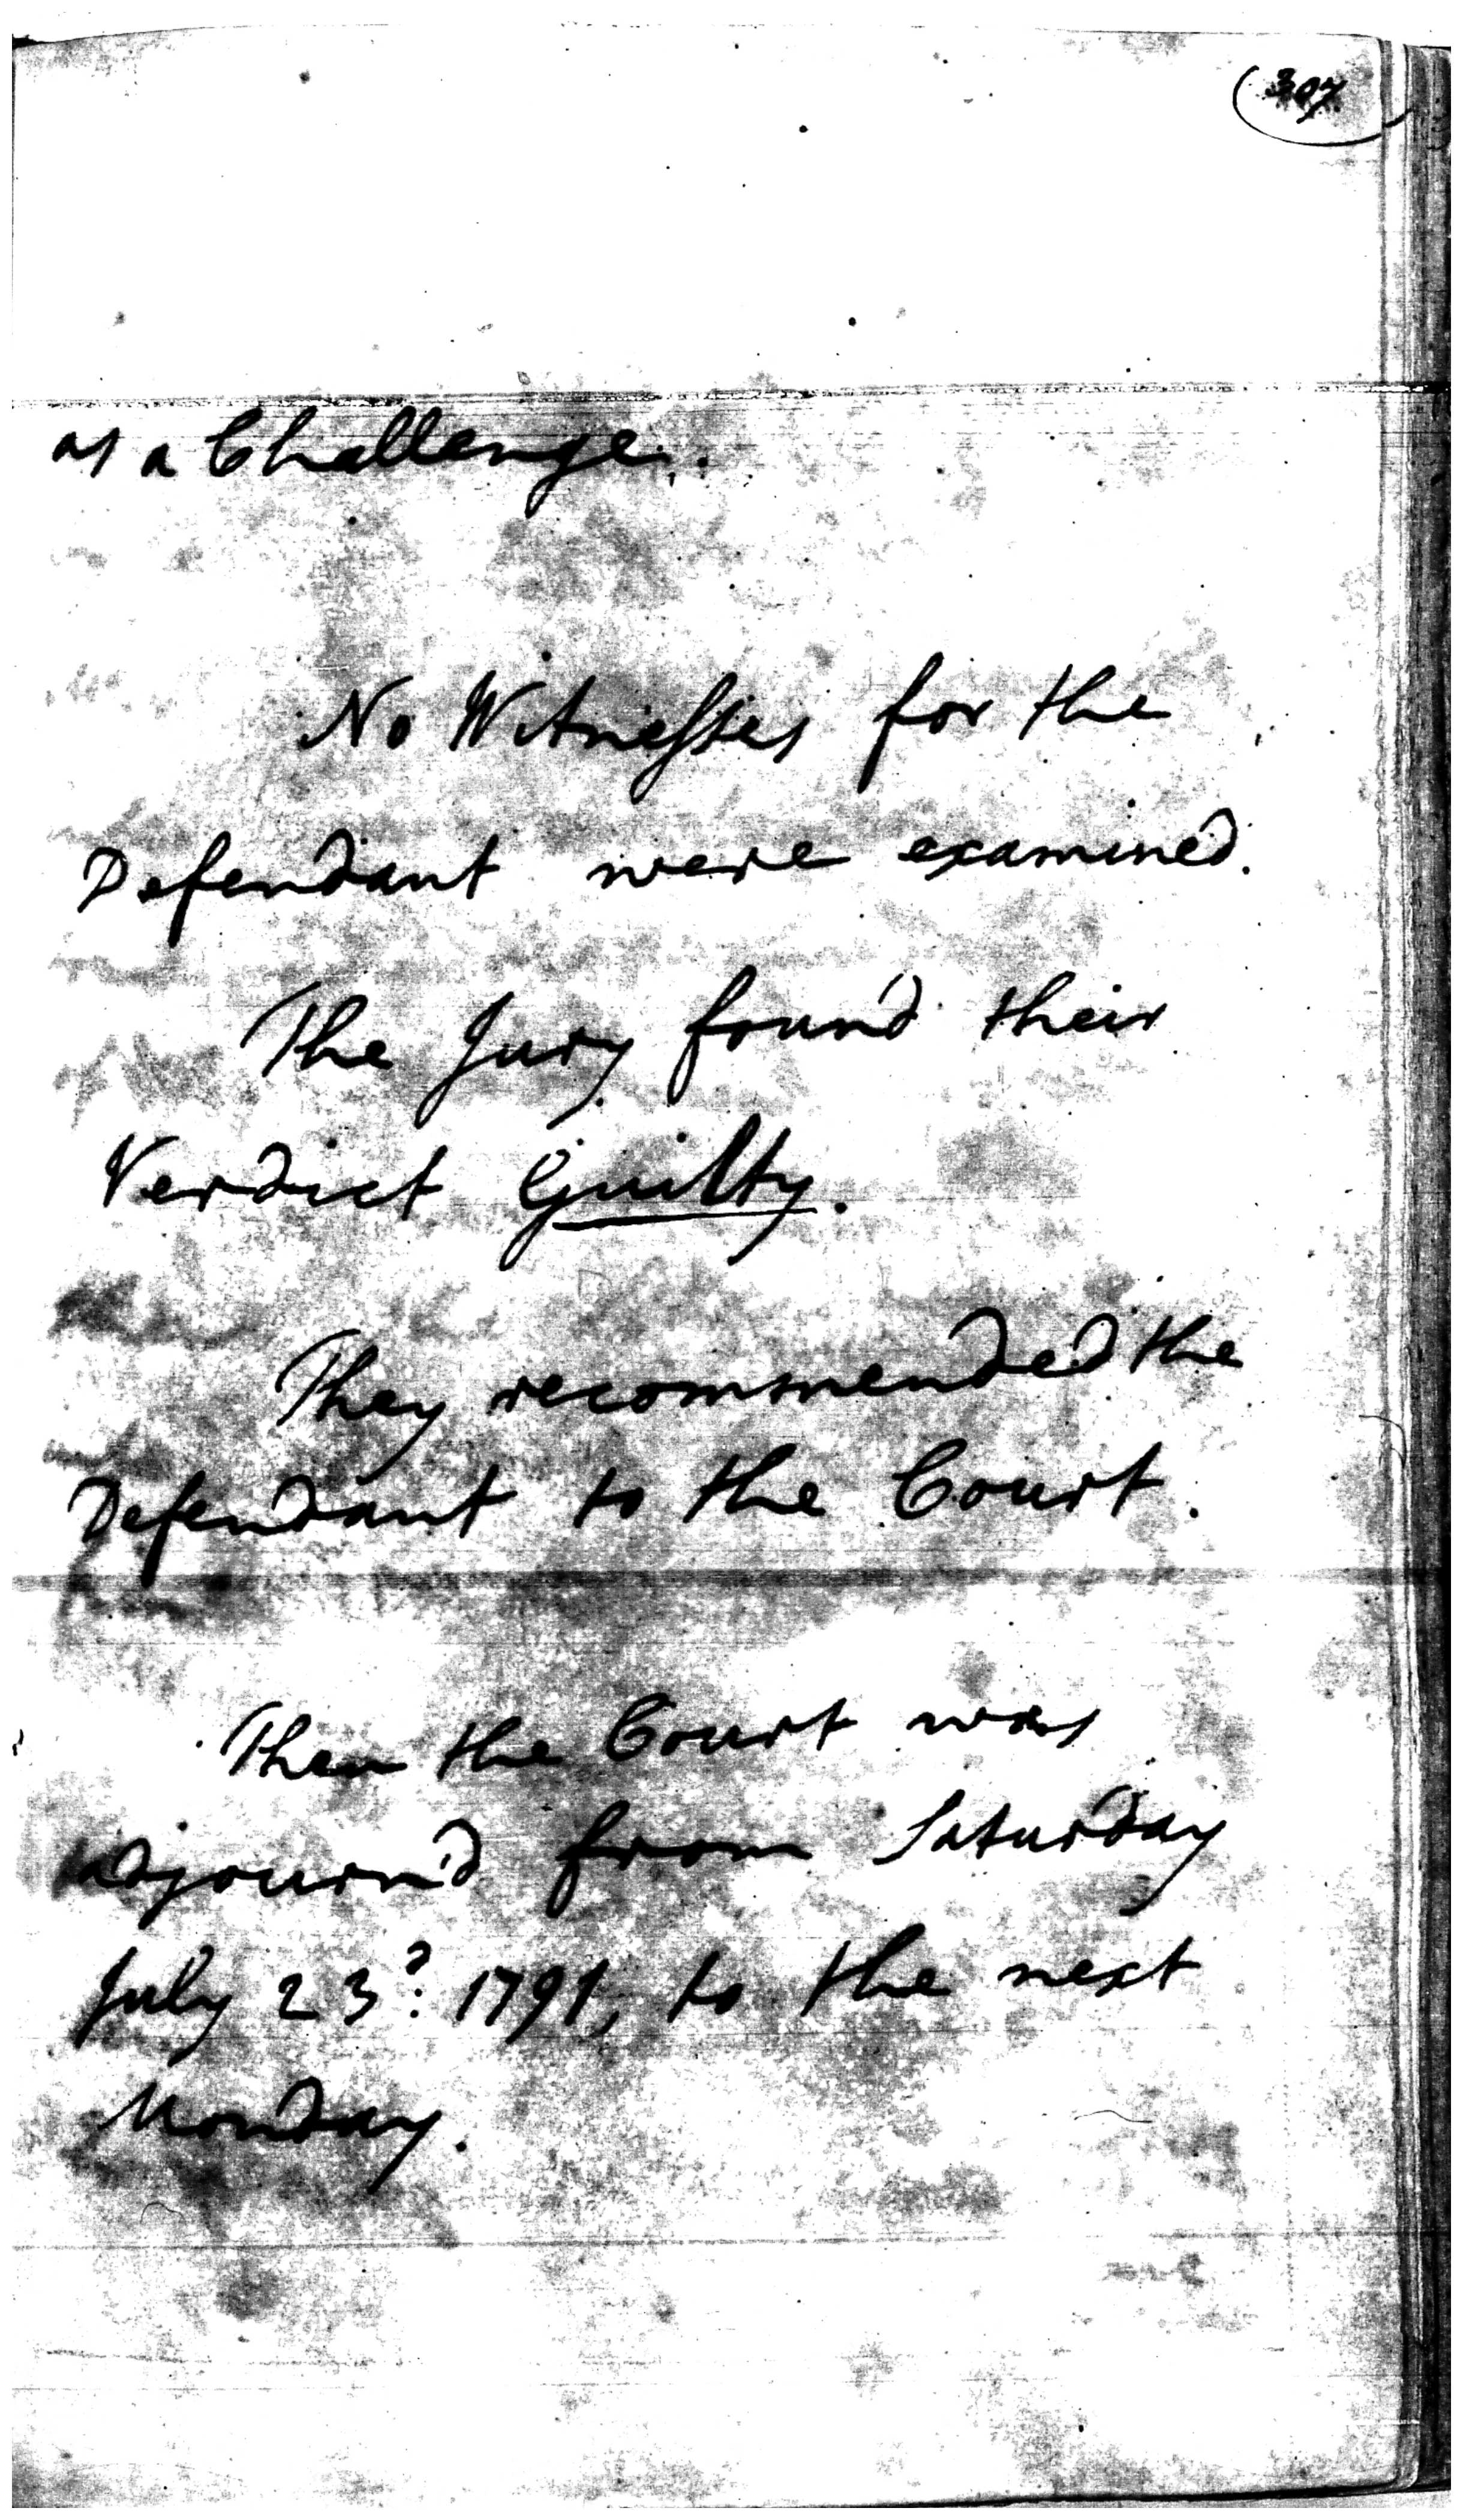 307
as a Challenge.
No Witnesses for the
Defendant were examined.
The Jury found their
Verdict Guilty.
They recommended the
Defendant to the Court.
Then the Court was
adjourn'd from Saturday
July 23d. 1791, to the next
Monday.